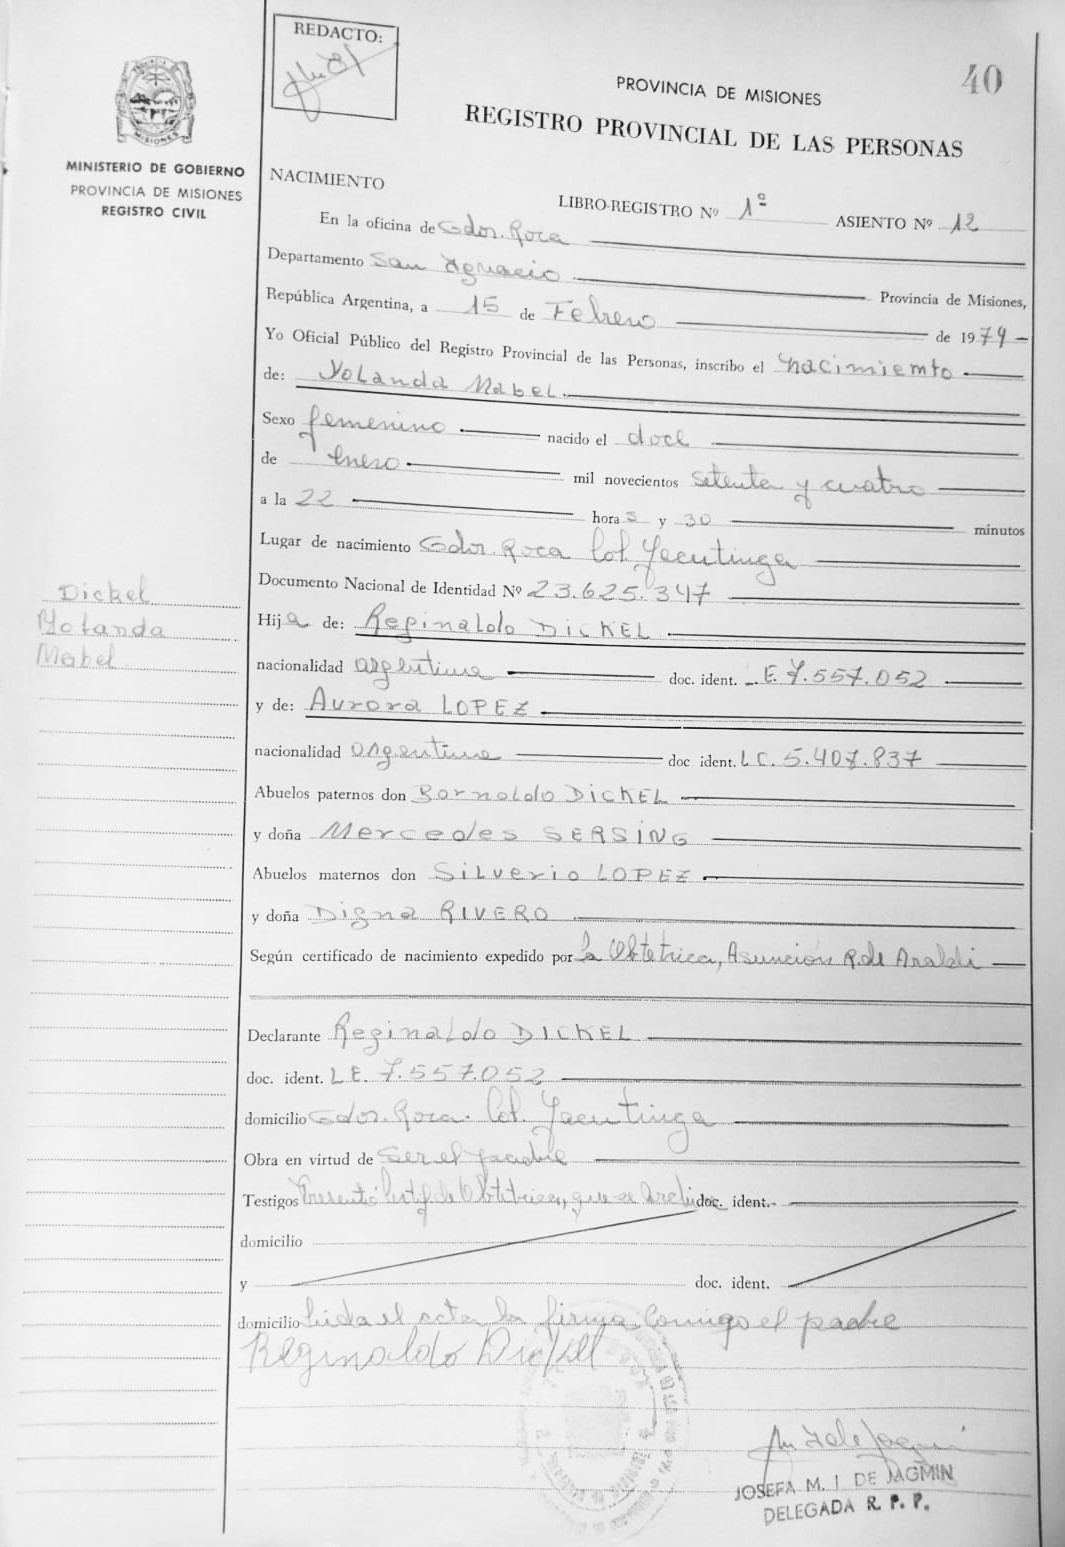 REDACTO:
40
PROVINCIA DE MISIONES
REGISTRO PROVINCIAL DE LAS PERSONAS
MISIONES
MINISTERIO DE GOBIERNO
PROVINCIA DE MISIONES
REGISTRO CIVIL
NACIMIENTO
LIBRO-REGISTRO Nº 1º ASIENTO Nº 12
En la oficina de Gdor. Roca
Departamento San Ignacio Provincia de Misiones,
República Argentina, a 15 de Febrero de 1974
Yo Oficial Público del Registro Provincial de las Personas, inscribo el nacimiento
de: Yolanda Mabel
Sexo femenino nacido el doce
de Enero mil novecientos setenta y cuatro
a la 22 horas y 30 minutos
Lugar de nacimiento Gdor. Roca Col. Yacutinga
Documento Nacional de Identidad Nº 23.625.347
Hija de: Reginaldo DICKEL
nacionalidad argentina doc. ident. L.E. 7.557.052
y de: Aurora LOPEZ
nacionalidad argentina doc ident. LC. 5.407.837
Abuelos paternos don Bornoldo DICKEL
y doña Mercedes SERSING
Abuelos maternos don Silverio LOPEZ
y doña Digna RIVERO
Según certificado de nacimiento expedido por la Obtetrica, Asunción R. de Araldi
Dickel
Yolanda
Mabel
Declarante Reginaldo DICKEL
doc. ident. L E. 7.557.052
domicilio Gdor. Roca. Col. Yacutinga
Obra en virtud de ser el padre
Testigos Presentó Certif. de Obtetrica, que se doc. ident.
domicilio
y doc. ident.
domicilio leida el acta la firma conmigo el padre
Reginaldo Dickel
JOSEFA M. I DE JAGMIN
DELEGADA R. P. P.